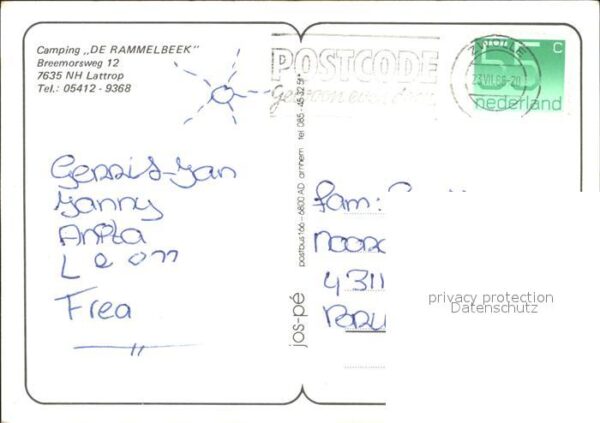 Camping „DE RAMMELBEEK"
Breemorsweg 12
7635 NH Lattrop
Tel.: 05412 - 9368
POSTCODE
Gewoon even doen
ZWOLLE
23.VII.86-20
55 c
nederland
Gerrit-Jan
Janny
Anita
Leon
Frea
jos-pé
postbus 166 - 6800 AD arnhem tel 085-45 32 51*
fam:
4311
privacy protection
Datenschutz